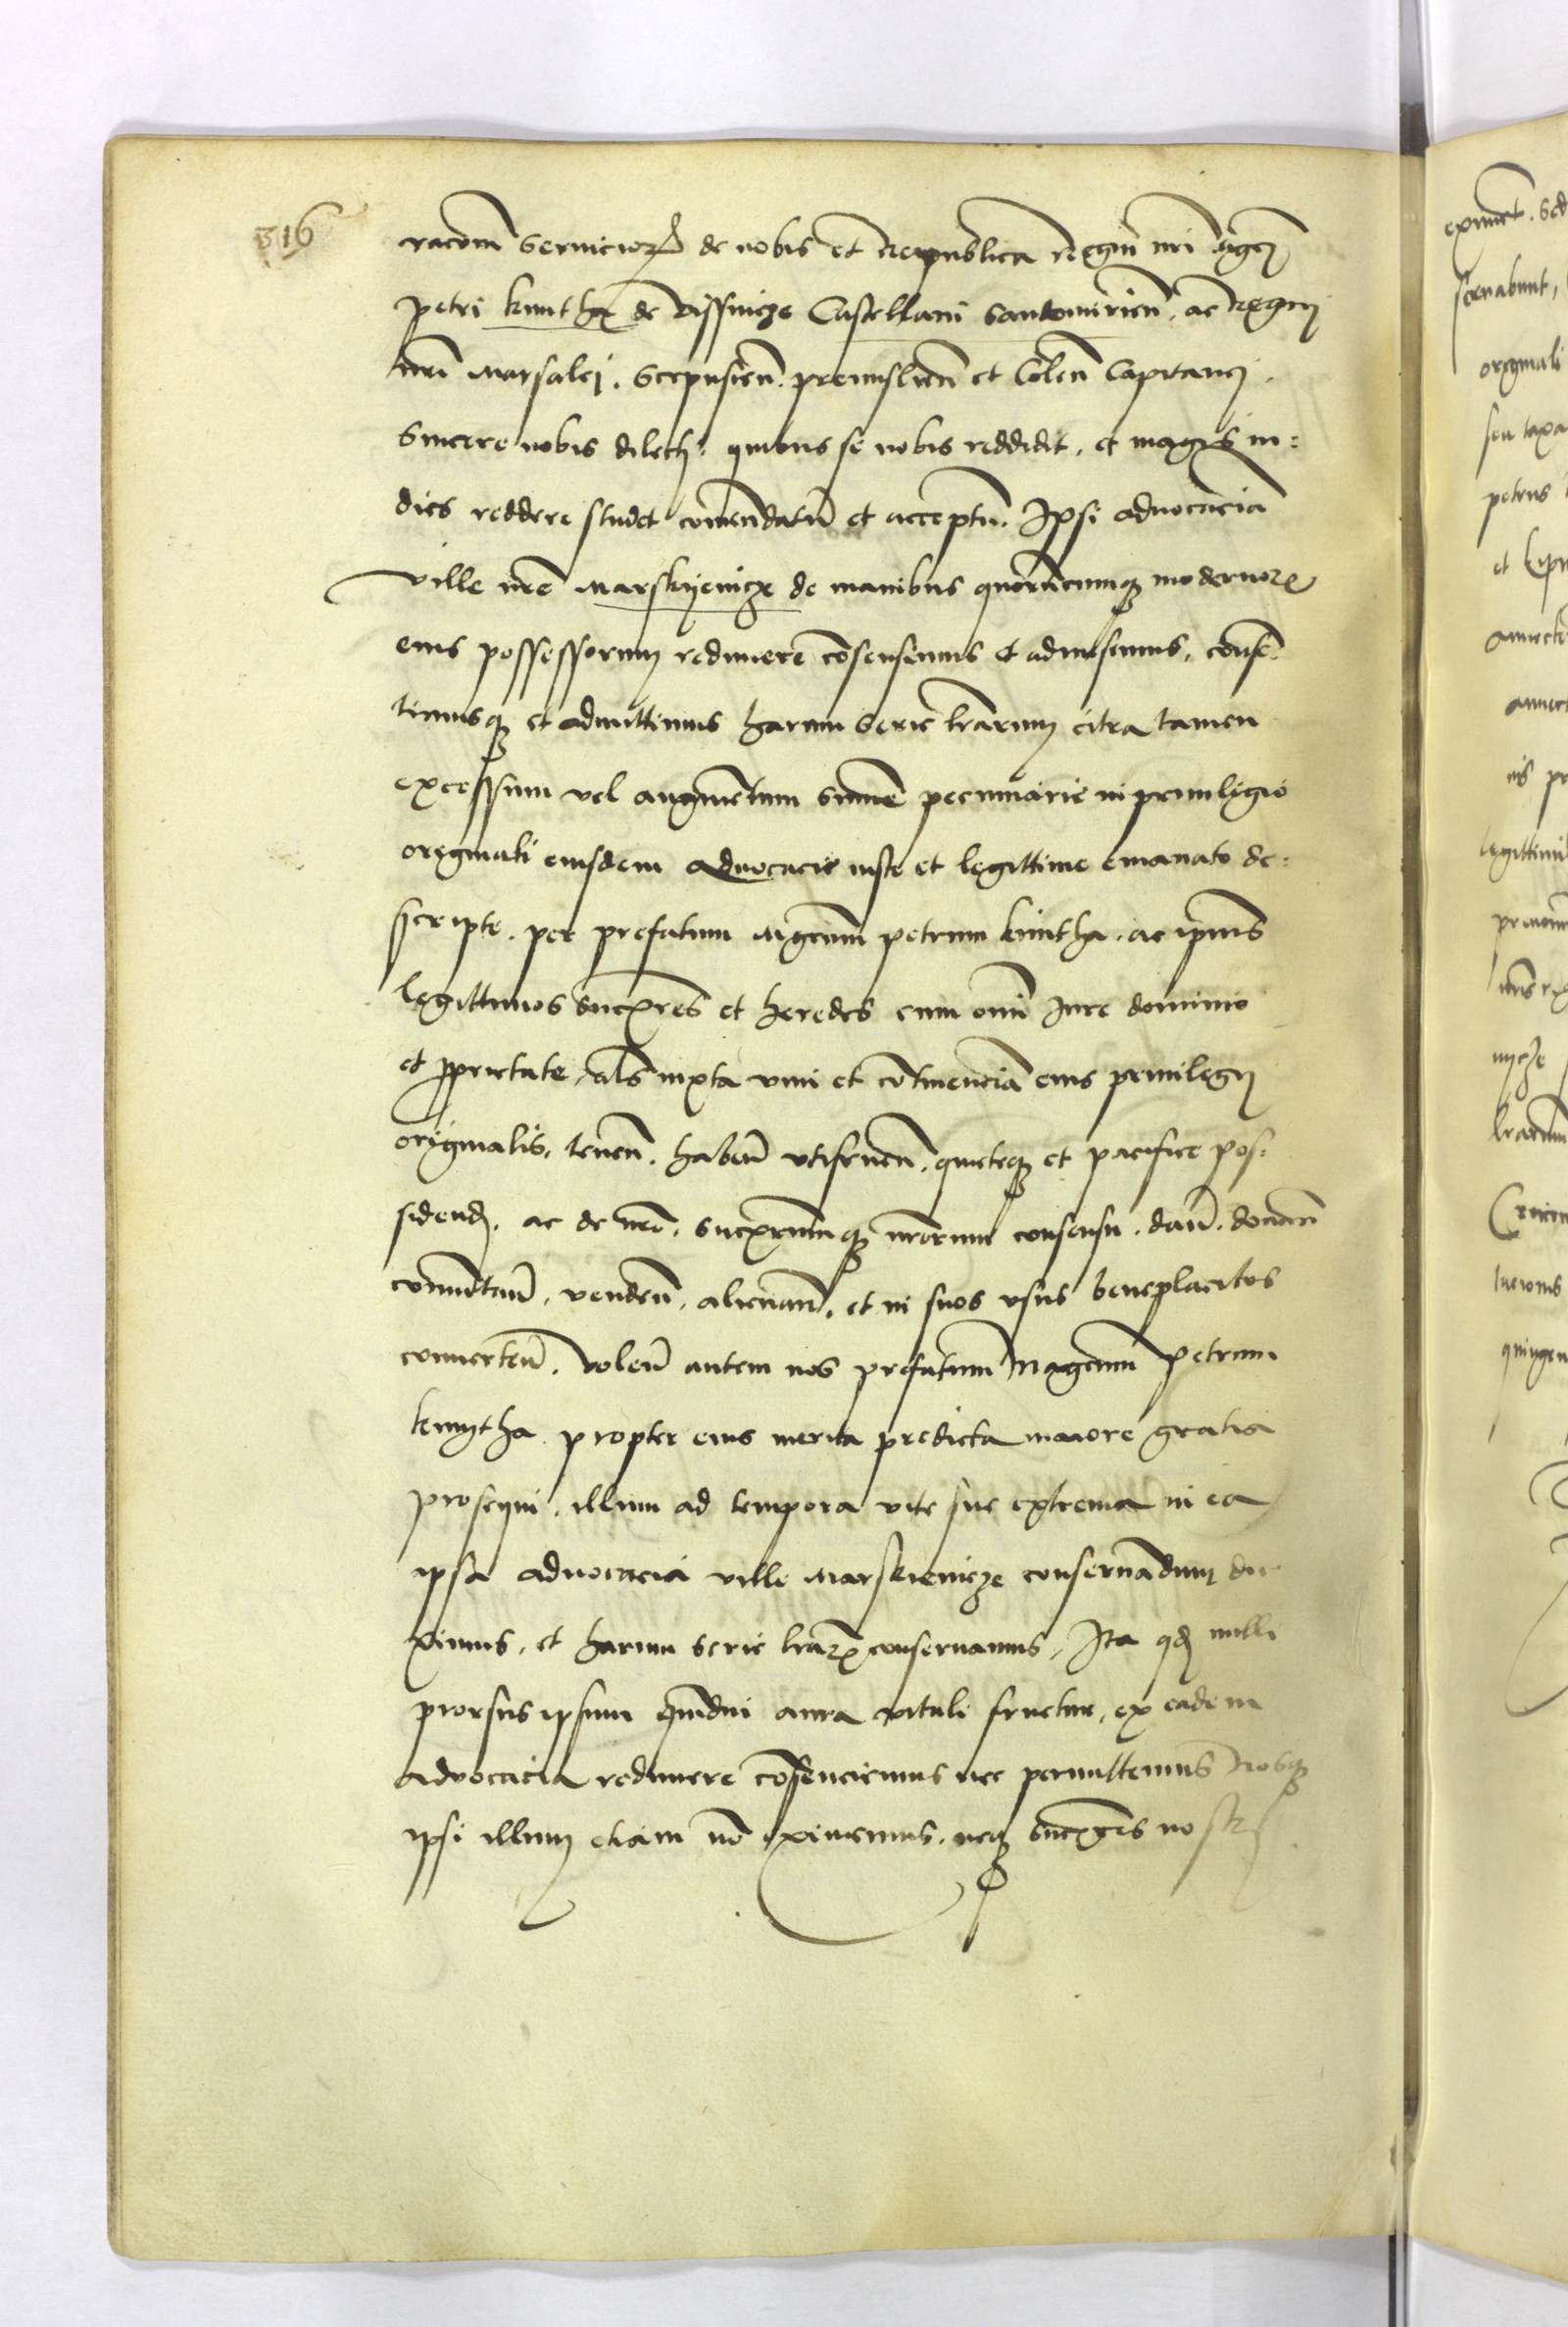 316
racōm serviciorꝝ de nobis et Republica Regni nr̄i Mgcj
petri kmitha de vissnicze Castellani Sandomirien̄. ac Regnj
nr̄i Marsalcj. Scepusien̄. premislien̄ et Colen̄ Capitanej.
Sincere nobis dilecti. quibus se nobis reddidit. et magis in:
dies reddere studet com̄endatū et acceptū. Ipsi advocaciā
ville nr̄e Marskyenicze de manibus quorūcumqꝫ modernoꝝ
eius possessorum redimere cōsensimus et admisimus. consē:
timusqꝫ et admittimus harum serie lr̄arum citra tamen
excessum vel augmentum sum̄e pecuniarie in privilegio
originali eiusdem advocacie iuste et legittime emanato de:
scripte. per prefatum Mgcum petrum kmitha. ac ip̄ius
legittimos succr̄es et heredes cum om̄i Iure dominio
et ꝓprietate. als iuxta vim et cōtinenciā eius privilegij
originalis. tenen̄. haben̄ utifruen̄. quieteqꝫ et pacifice pos:
sidend. ac de nr̄o. succr̄umqꝫ nr̄orum consensu. dan̄. donan̄
com̄utan̄. venden̄. alienan̄. et in suos usus beneplacitos
converten̄. Volen̄ autem nos prefatum Magcum petrum
kmytha propter eius merita predicta maiore gratia
prosequi. illum ad tempora vite sue extrema in ea
ipsa advocacia ville Marskienicze conservandum du
ximus. et harum serie lr̄arꝝ conservamus. Ita qd nulli
prorsus ipsum quādiu aura vitali fruetur. ex eadem
advocacia redimere cōsenciemus nec permittemus Nosqꝫ
ipsi illum etiam nō eximemus. neqꝫ succr̄es nostrj
eximent. Sed
originali
seu taxa
petrus
et
legittimi